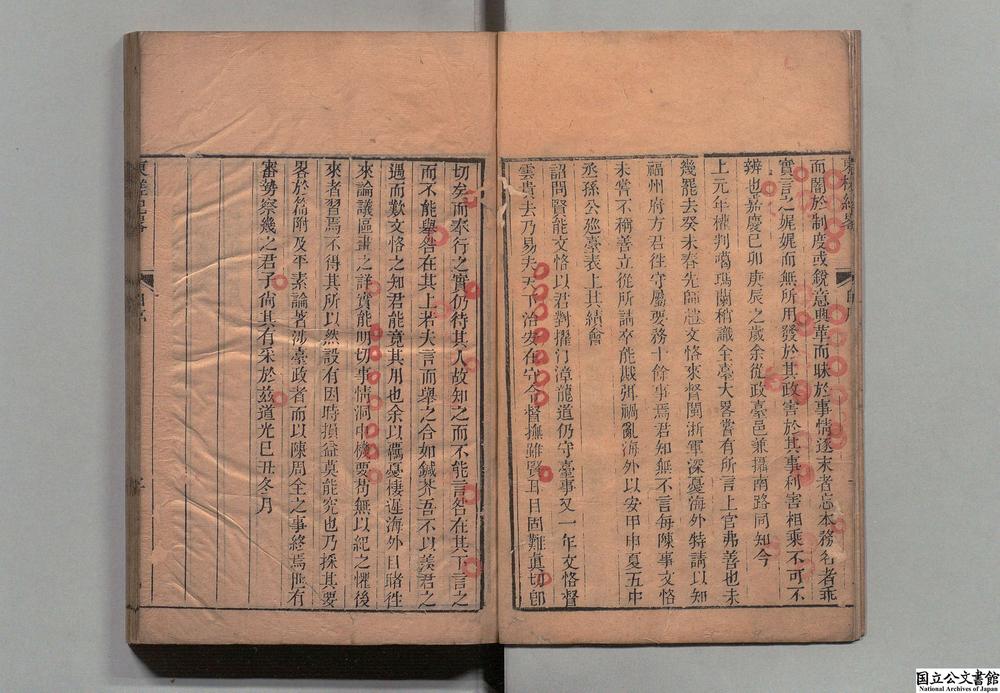 而闇於制度或銳意興革而昧於事情逐末者忘本務名者乖
實言之娓娓而無所用發於其政害於其事利害相乘不可不
辨也嘉慶己卯庚辰之歲余從政臺邑兼攝南路同知今
上元年權判噶瑪蘭稍識全臺大畧嘗有所言上官弗善也未
幾罷去癸未春先師趙文恪來督閩浙軍深憂海外特請以知
福州府方君往守屬要務十餘事焉君知無不言每陳事文恪
未嘗不稱善立從所請卒能戡弭禍亂海外以安甲申夏五中
丞孫公廵臺表上其績會
詔問賢能文恪以君對擢汀漳龍道仍守臺事又一年文恪督
雲貴去乃易夫天下治安在守令督撫雖賢耳目固難眞切卽
切矣而奉行之實仍待其人故知之而不能言咎在其下言之
而不能舉咎在其上若夫言而舉之合如鍼芥吾不以羨君之
遇而歎文恪之知君能竟其用也余以罵憂棲遲海外目睹往
來論議區畫之詳實能明切事情洞中機要苟無以紀之懼後
來者習焉不得其所以然設有因時損益莫能究也乃採其要
畧於篇附及平素論著涉臺政者而以陳周全之事終焉世有
審勢察幾之君子尚其有采於茲道光己丑冬月
東槎紀畧
自序
国立公文書館
National Archives of Japan